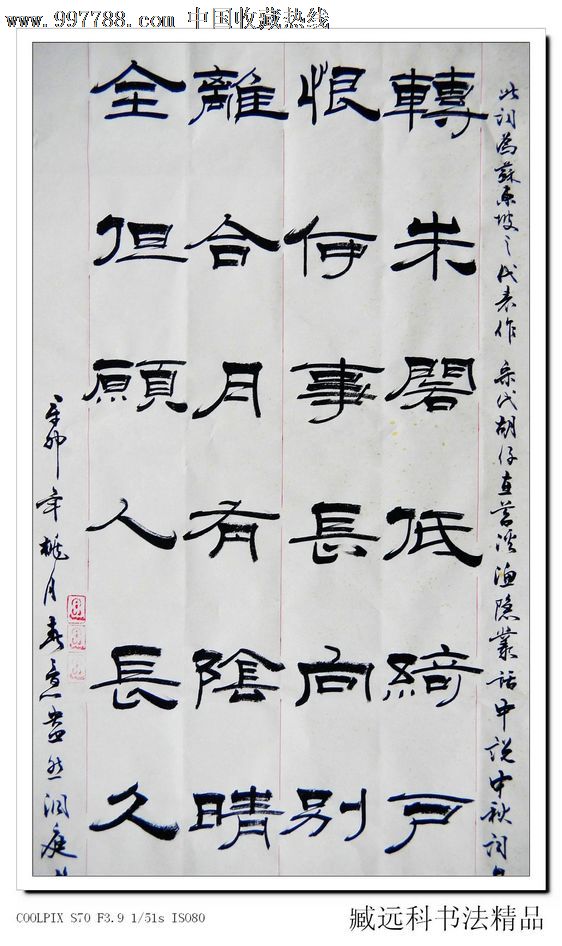 www.997788.com 中国收藏热线
此词為蘇东坡之代表作 宋代胡仔直苕溪渔隐叢话中说中秋词
轉朱閣低綺戶
恨何事長向別
離合月有陰晴
全但願人長久
辛卯年桃月春意盎然洞庭
COOLPIX S70 F3.9 1/51s ISO80
臧远科书法精品